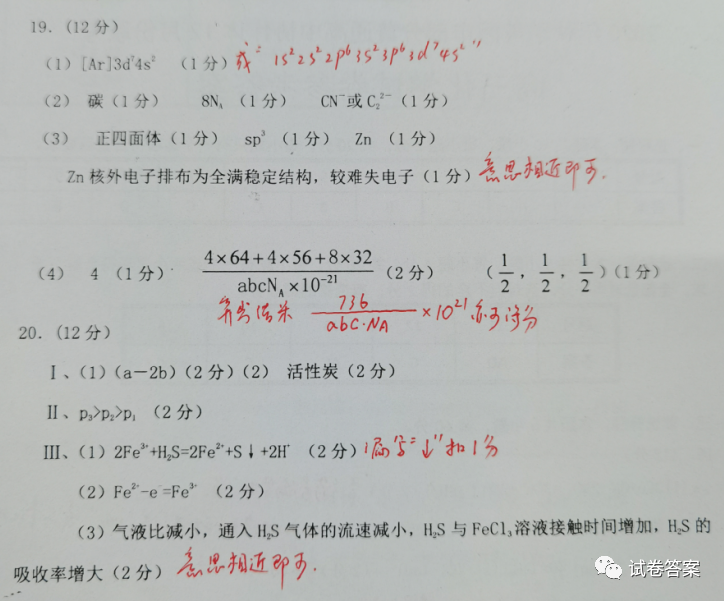 19.(12分)
(1)[Ar]3d⁷4s² (1分) 或"1s²2s²2p⁶3s²3p⁶3d⁷4s²"
(2) 碳(1分) 8N_A(1分) CN⁻或C₂²⁻(1分)
(3) 正四面体(1分) sp³(1分) Zn(1分)
Zn核外电子排布为全满稳定结构,较难失电子(1分) 意思相近即可.
(4) 4(1分) (4×64+4×56+8×32)/(abcN_A×10⁻²¹)(2分) (1/2,1/2,1/2)(1分)
736/(abc·N_A)×10²¹亦可得分
20.(12分)
Ⅰ、(1)(a-2b)(2分)(2) 活性炭(2分)
Ⅱ、p₃>p₂>p₁(2分)
Ⅲ、(1)2Fe³⁺+H₂S=2Fe²⁺+S↓+2H⁺(2分) 漏写"↓"扣1分
(2)Fe²⁺-e⁻=Fe³⁺(2分)
(3)气液比减小,通入H₂S气体的流速减小,H₂S与FeCl₃溶液接触时间增加,H₂S的
吸收率增大(2分) 意思相近即可.
试卷答案